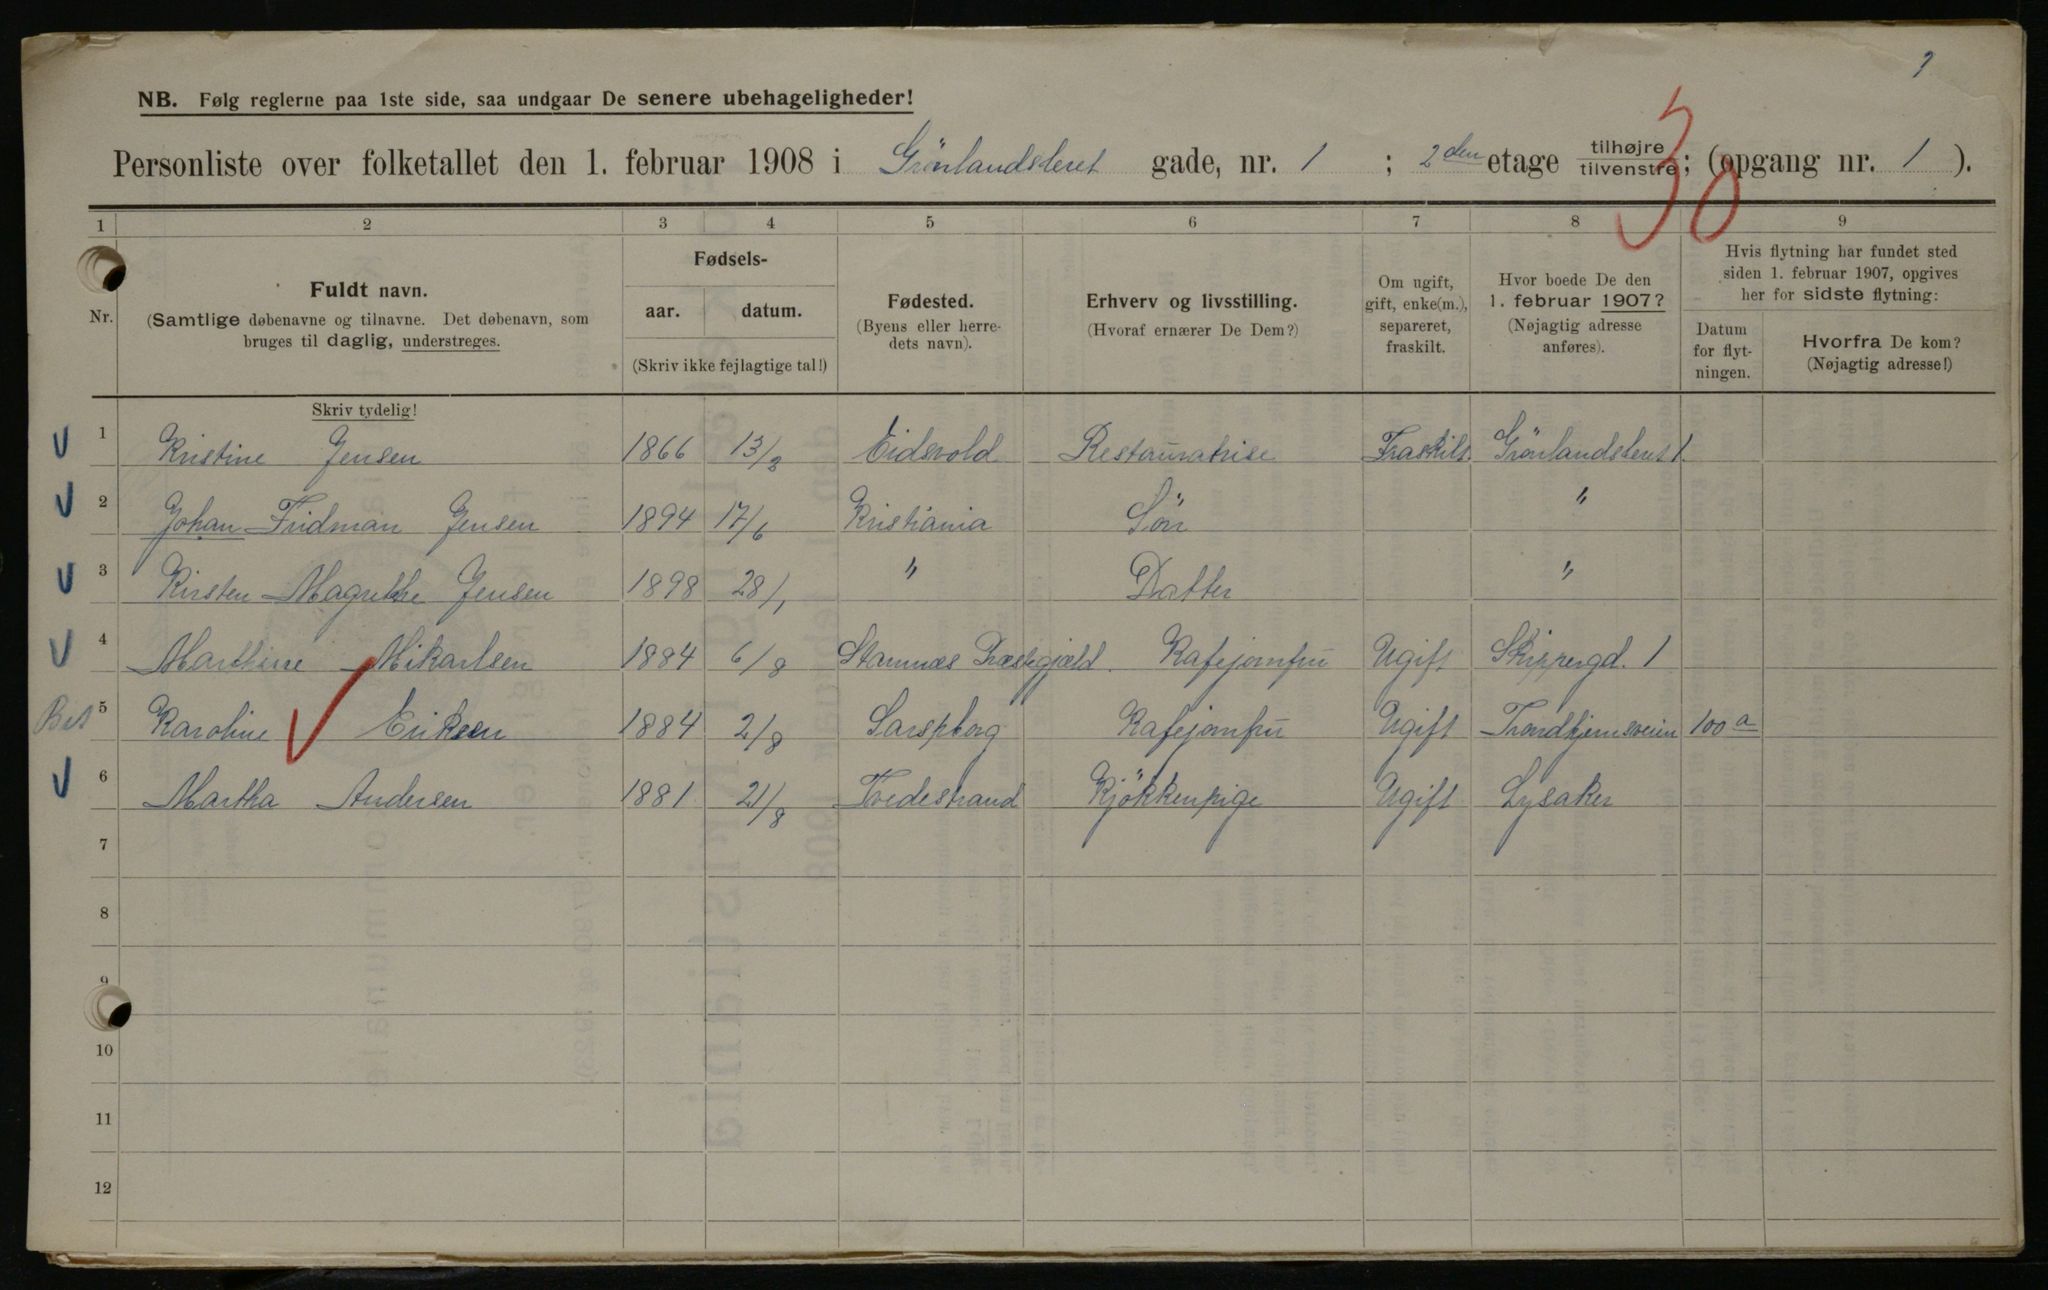 NB. Følg reglerne paa 1ste side, saa undgaar De senere ubehageligheder!
Personliste over folketallet den 1. februar 1908 i Grönlandsleret gade, nr. 1 ; 2den etage tilhøjre/tilvenstre; (opgang nr. 1 ).
30
1 2 3 4 5 6 7 8 9
Nr.
Fuldt navn.
(Samtlige døbenavne og tilnavne. Det døbenavn, som
bruges til daglig, understreges.
Fødsels-
aar. datum.
(Skriv ikke fejlagtige tal!)
Fødested.
(Byens eller herre-
dets navn).
Erhverv og livsstilling.
(Hvoraf ernærer De Dem?)
Om ugift,
gift, enke(m.),
separeret,
fraskilt.
Hvor boede De den
1. februar 1907?
(Nøjagtig adresse
anføres).
Hvis flytning har fundet sted
siden 1. februar 1907, opgives
her for sidste flytning:
Datum
for flyt-
ningen.
Hvorfra De kom?
(Nøjagtig adresse!)
Skriv tydelig!
1 Kristine Jensen 1866 13/8 Eidsvold Restauratrise Fraskilt Grönlandsleret 1.
2 Johan Fridman Jensen 1894 17/6 Kristiania Sön "
3 Kirsten Magrethe Jensen 1898 28/1 " Datter "
4 Marthine Mikarlsen 1884 6/8 Stamnæs Præstegjæld. Kafejomfru Ugift Skippergd. 1
5 Karoline Eriksen 1884 2/8 Sarpsborg Kafejomfru Ugift Trondhjemsveien 100 a
6 Martha Andersen 1881 21/8 Tvedestrand Kjökkenpige Ugift Lysaker
7
8
9
10
11
12